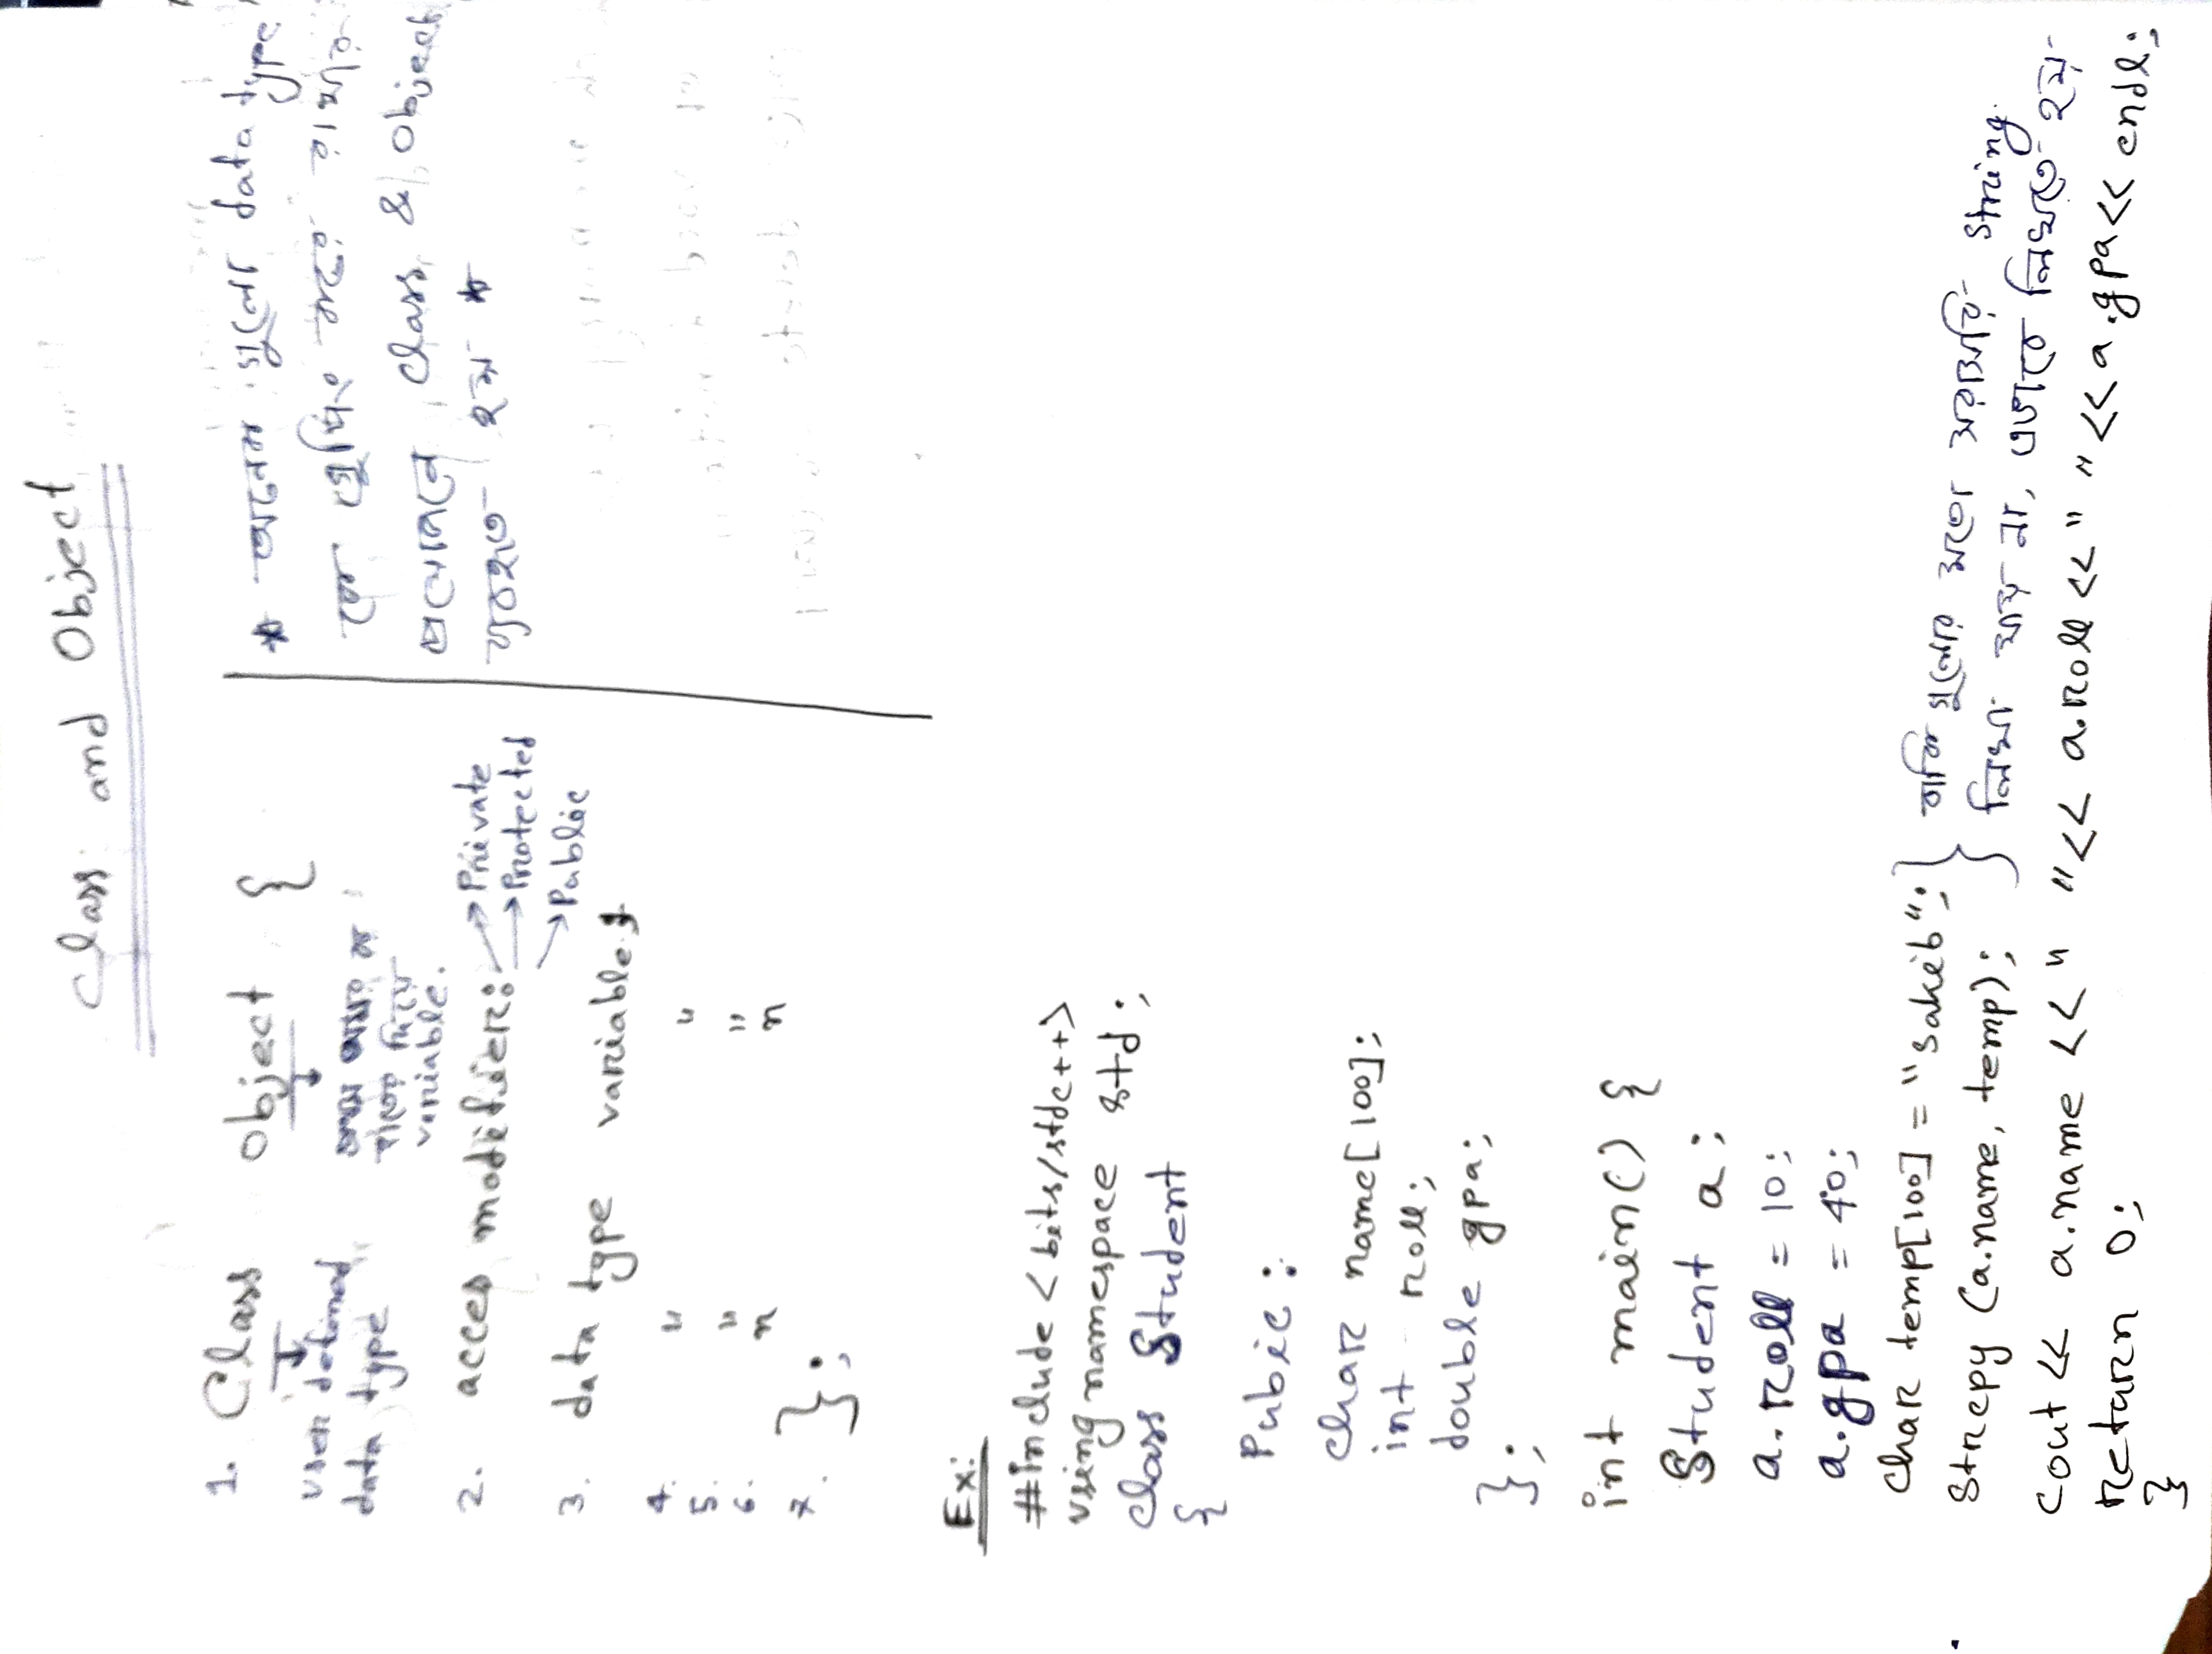 Class and Object
1. Class object {
user defined
data type
প্রথম অক্ষর বড়
হাতের দিয়ে
variable.
2. acces modifier: → Private
→ Protected
→ Public
3. data type variable;
4. " "
5. " "
6. n n
7. };
* অনেক গুলো data type
কে গ্রুপিং করে রাখার
প্রয়োজনে class & object
ব্যবহৃত হয় *
Ex:
#include <bits/stdc++>
using namespace std;
class Student
{
Pubic :
char name[100];
int roll;
double gpa;
};
int main() {
Student a ;
a.roll = 10;
a.gpa = 4.0;
char temp[100] = "sakib"; } বাকি গুলোর মতো সরাসরি string
strcpy (a.name, temp); লিখা যায় না, এভাবে লিখতে হয়
cout << a.name << " " << a.roll << " " << a.gpa << endl;
return 0;
}